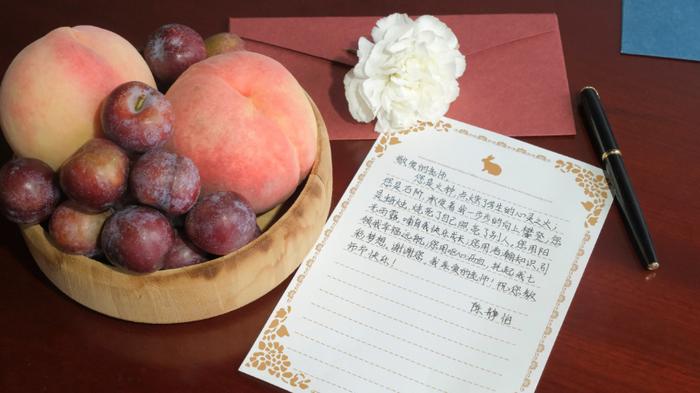 敬爱的老师:
您是火种,点燃了学生的心灵之火;
您是石阶,承受着我一步步的向上攀登;您
是蜡烛,燃亮了自己照亮了别人。您用阳
光雨露,哺育我快乐成长;您用语翰知识,引
领我幸福远航;您用心心血,托起我七
彩梦想。谢谢您,我亲爱的老师!祝您教
师节快乐!
陈静怡